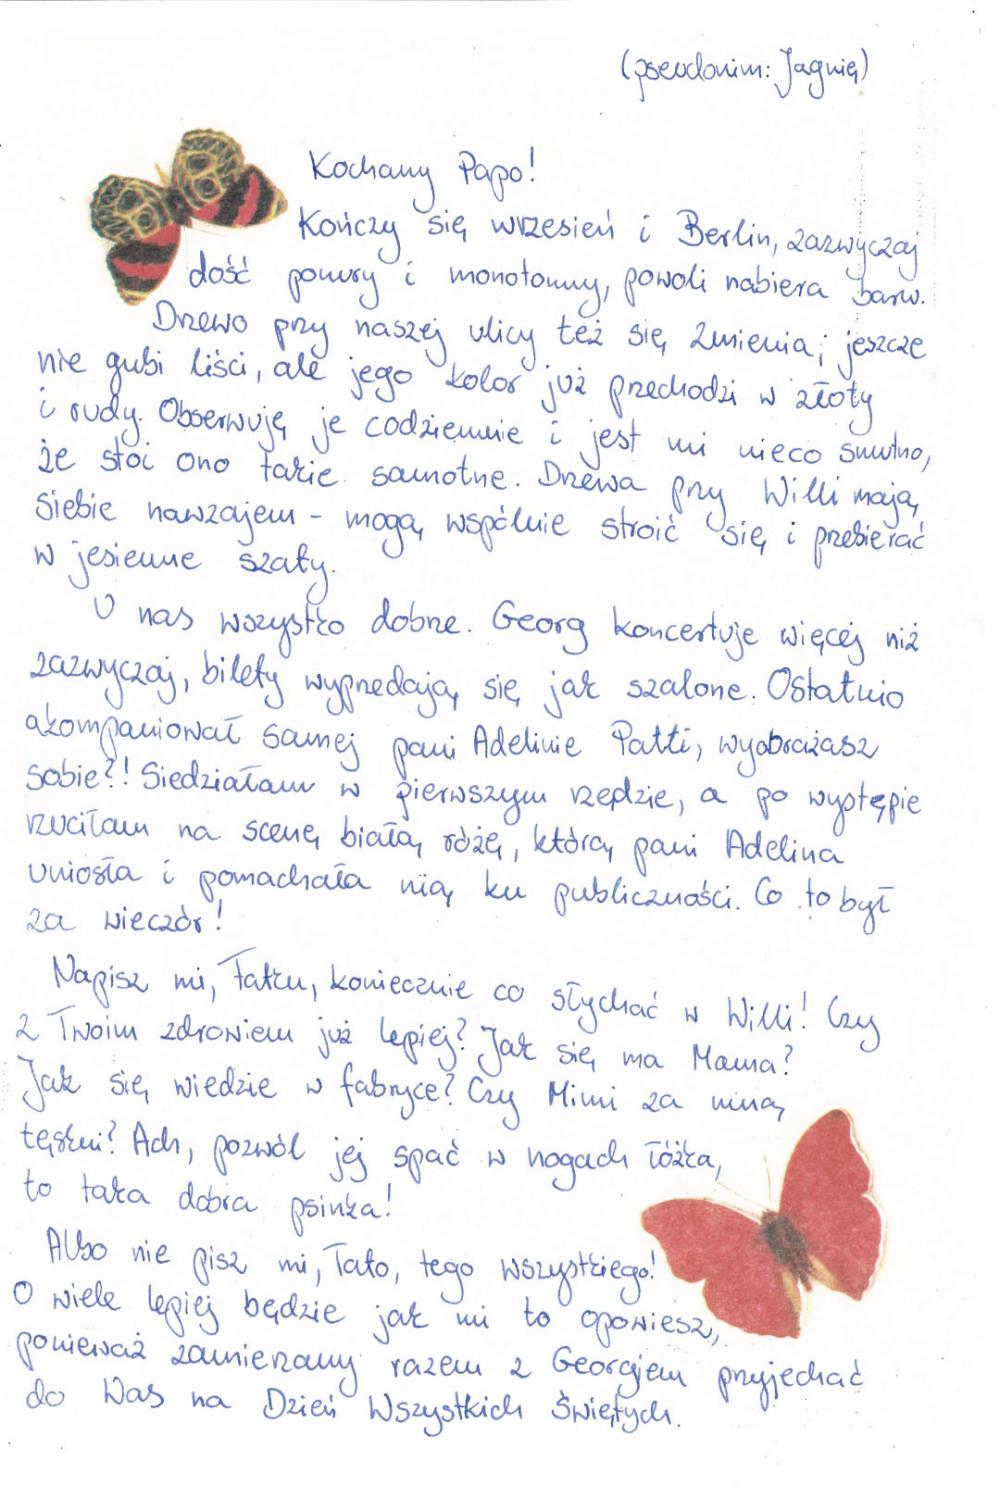 (pseudonim: Jagnię)
Kochany Papo!
Kończy się wrzesień i Berlin, zazwyczaj
dość ponury i monotonny, powoli nabiera barw.
Drzewo przy naszej ulicy też się zmienia; jeszcze
nie gubi liści, ale jego kolor już przechodzi w złoty
i rudy. Obserwuję je codziennie i jest mi nieco smutno,
że stoi ono takie samotne. Drzewa przy Willi mają
siebie nawzajem - mogą wspólnie stroić się i przebierać
w jesienne szaty.
U nas wszystko dobrze. Georg koncertuje więcej niż
zazwyczaj, bilety wyprzedają się jak szalone. Ostatnio
akompaniował samej pani Adelinie Patti, wyobrażasz
sobie?! Siedziałam w pierwszym rzędzie, a po występie
rzuciłam na scenę białą różę, którą pani Adelina
uniosła i pomachała nią ku publiczności. Co to był
za wieczór!
Napisz mi, Tatku, koniecznie co słychać w Willi! Czy
z Twoim zdrowiem już lepiej? Jak się ma Mama?
Jak się wiedzie w fabryce? Czy Mimi za mną
tęskni? Ach, pozwól jej spać w nogach łóżka,
to taka dobra psinka!
Albo nie pisz mi, Tato, tego wszystkiego!
O wiele lepiej będzie jak mi to opowiesz,
ponieważ zamierzamy razem z Georgiem przyjechać
do Was na Dzień Wszystkich Świętych.